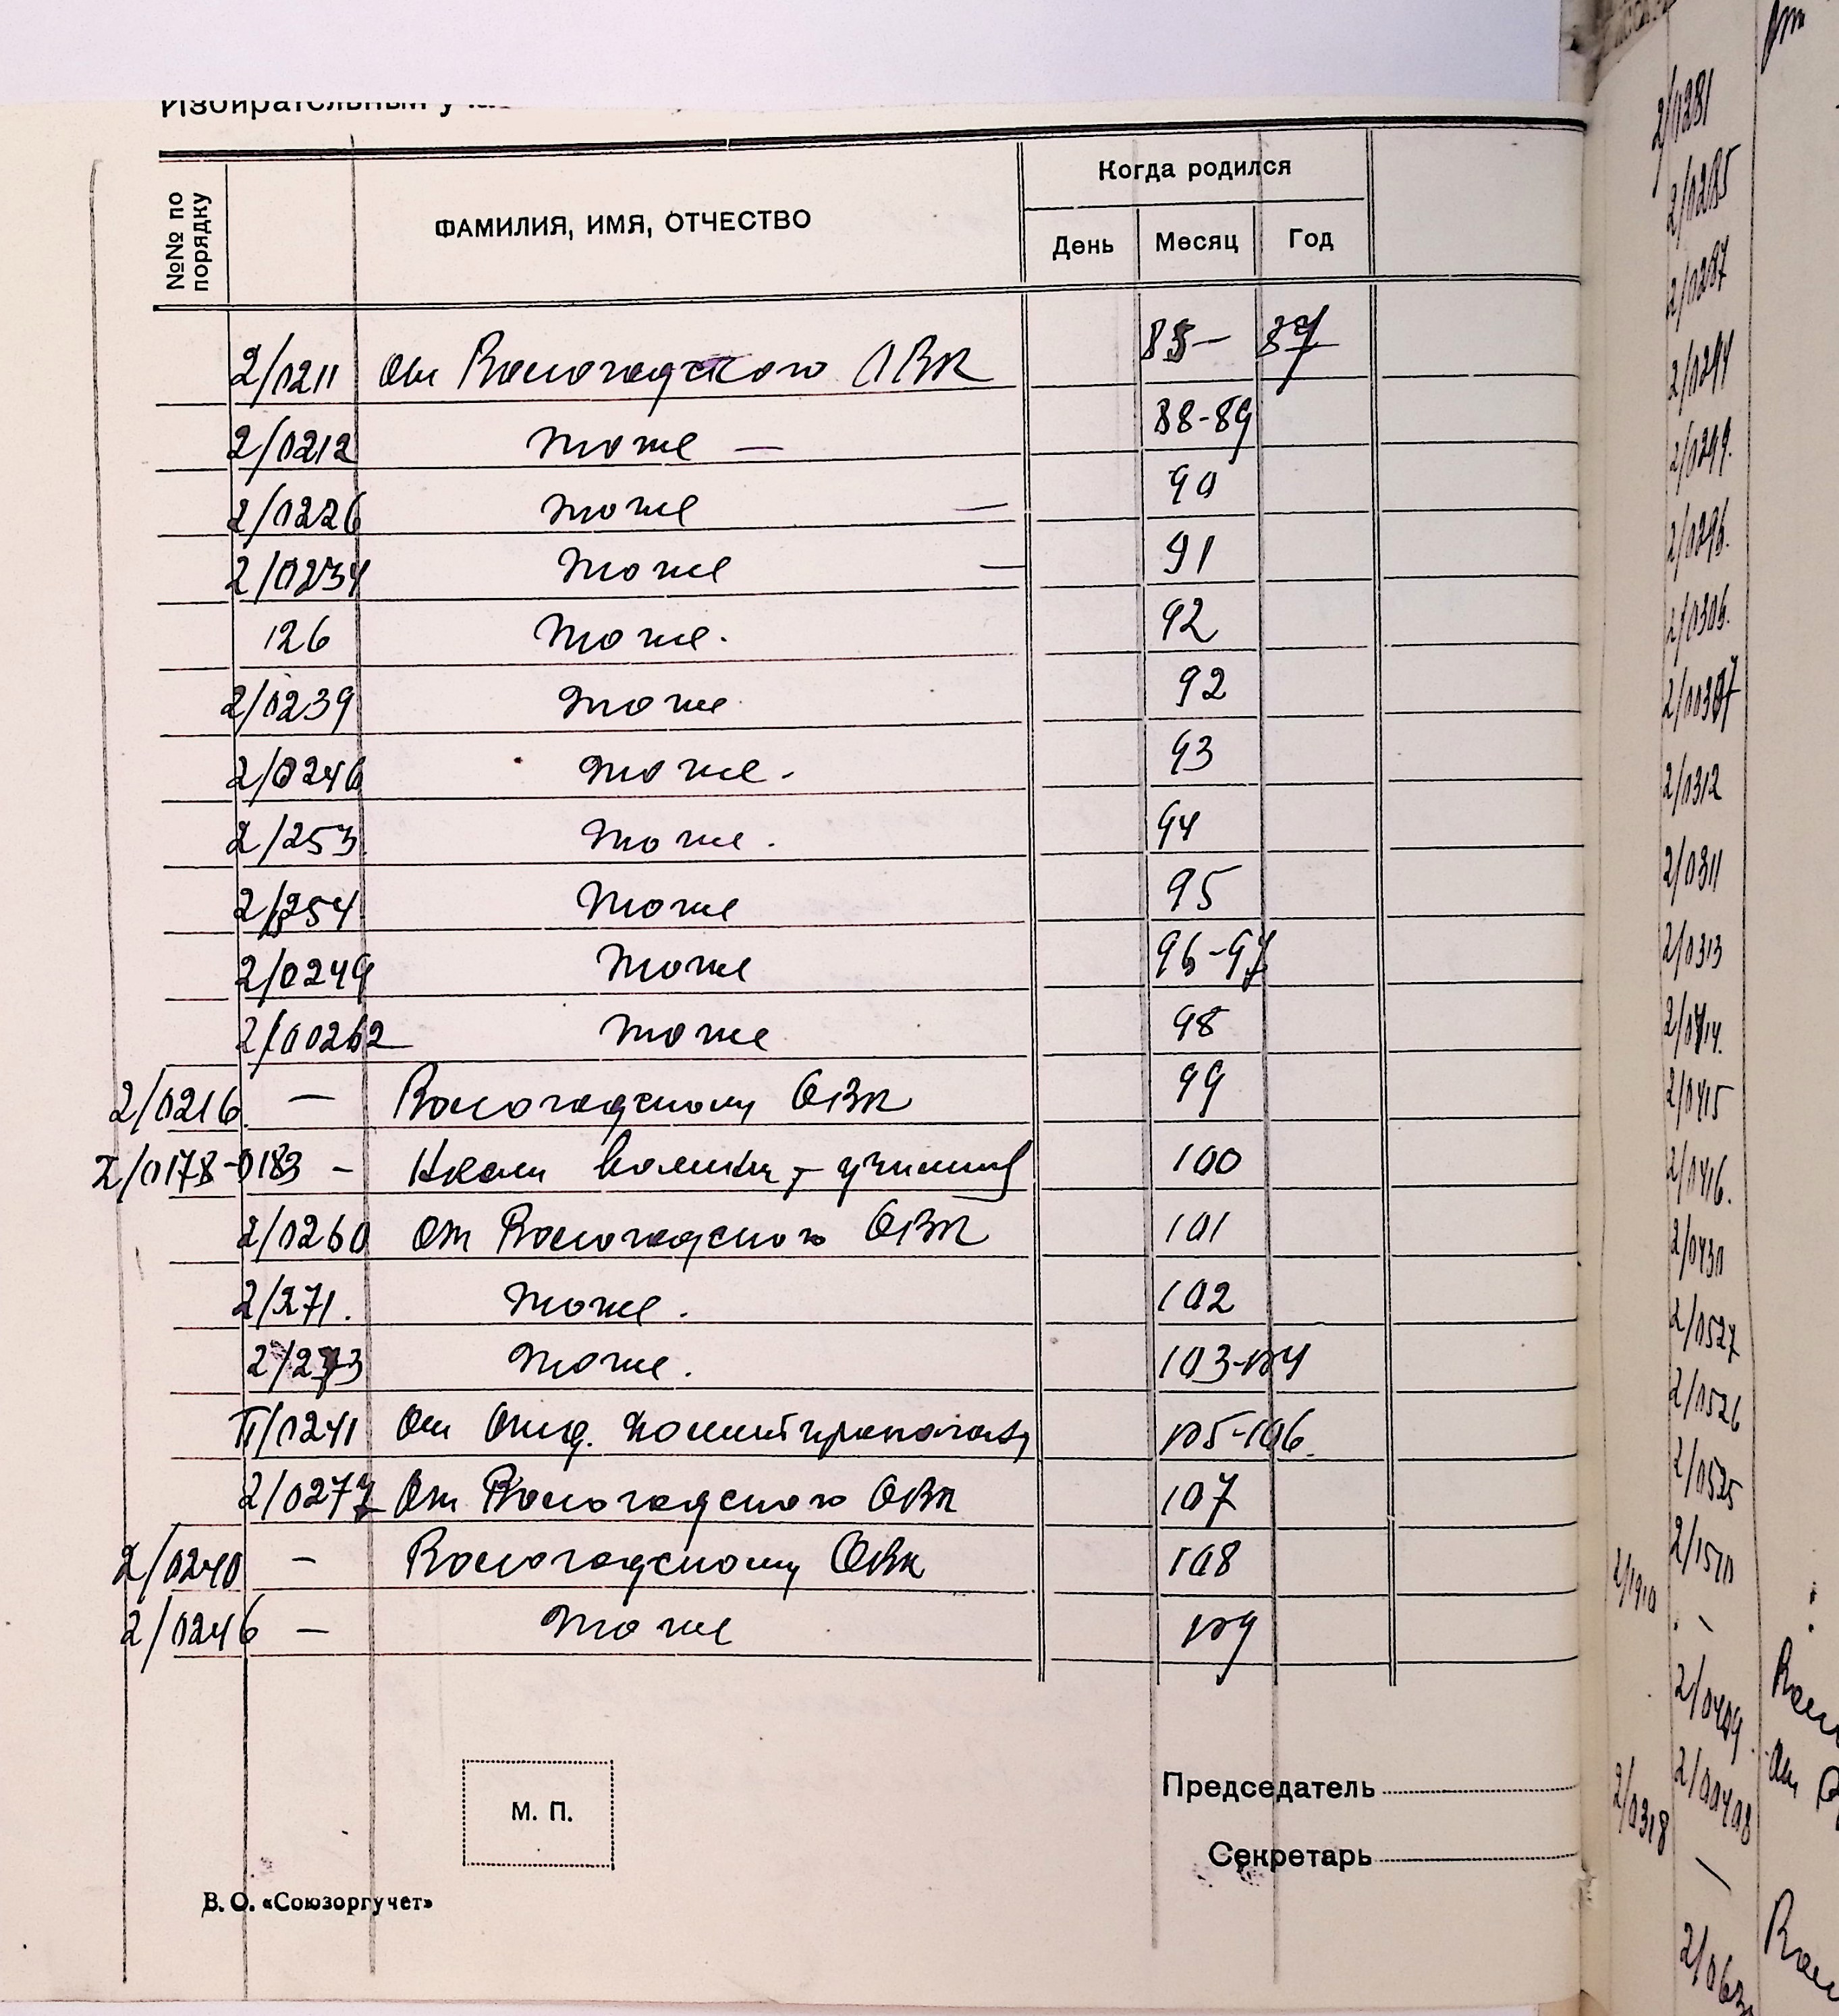 Избирательный уча
№№ по порядку
ФАМИЛИЯ, ИМЯ, ОТЧЕСТВО
Когда родился
День Месяц Год
2/0211 от Вологодского ОВК 85- 87
2/0212 тоже — 88-89
2/0226 тоже — 90
2/0234 тоже — 91
126 тоже. 92
2/0239 тоже 92
2/0246 тоже. 93
2/253 тоже. 94
2/254 тоже 95
2/0249 тоже 96-97
2/00262 тоже 98
2/0216 — Вологодскому ОВК 99
2/0178-0183 — 100
2/0260 От Вологодского ОВК 101
2/271. тоже. 102
2/273 тоже. 103-104
II/0241 От 105-106
2/0277 От Вологодского ОВК 107
2/0240 — Вологодскому ОВК 108
2/0246 — тоже 109
М. П.
Председатель
Секретарь
В. О. «Союзоргучет»
2/0281
2/0285
2/0287
2/0294
2/0299.
2/0296.
2/0306.
2/00307
2/0312
2/0311
2/0313
2/0414.
2/0415
2/0416.
2/0430
2/0527
2/0526
2/0525
2/1510
2/1910 —
2/0409.
2/00408
2/0318 —